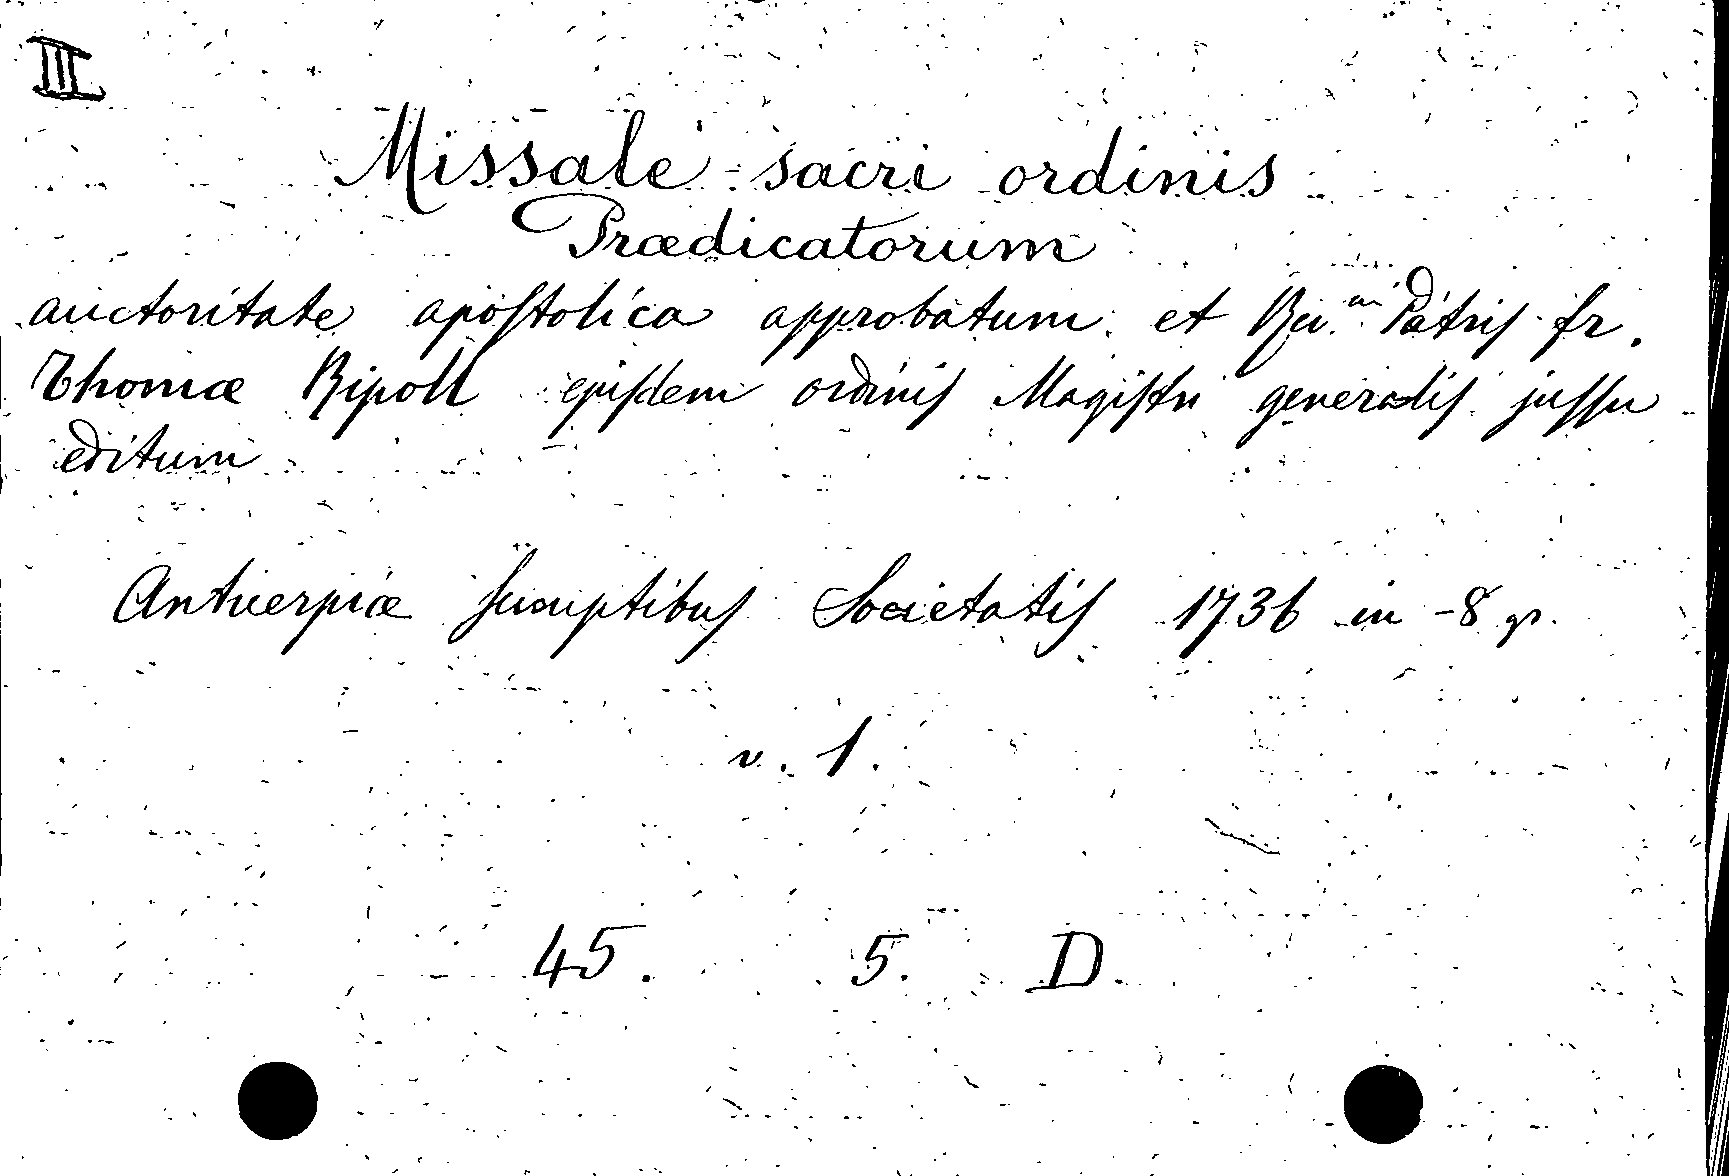 III
Missale sacri ordinis
Prædicatorum
auctoritate apostolica approbatum et Rev.mi Patris fr.
Thomæ Ripoll ejusdem ordinis Magistri generalis jussu
editum
Antverpiæ sumptibus Societatis 1736 in-8 gr.
v. 1.
45. 5. D.